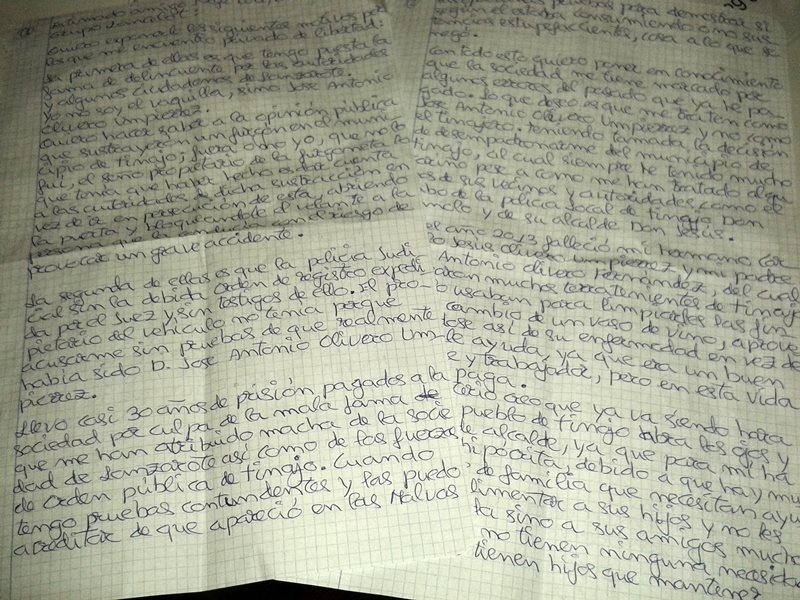 Grupo
Quiero exponer los siguientes motivos por
los que me encuentro privado de libertad:
La primera de ellas es que tengo puesta la
fama de delincuente por las autoridades
y algunos ciudadanos de Lanzarote.
Yo no soy el vaquilla, sino Jose Antonio
Olivero Umpierrez.
Quiero hacer saber a la opinión pública
que sustrayeron un furgón en el muni-
cipio de Tinajo, fuera o no yo, que no lo
fui, el seno propietario de la furgoneta lo
que tenía que haber hecho es dar cuenta
a las autoridades de dicha sustracción en
vez de ir en persecución de esta, abriendo
la puerta y bloqueandole el volante a la
persona que la conducía con el riesgo de
provocar un grave accidente.
La segunda de ellas es que la policia Judi-
cial sin la debida orden de registro expedi-
da por el Juez y sin testigos de ello. El pro-
pietario del vehículo no tenía porque
acusarme sin pruebas de que realmente
había sido D. Jose Antonio Olivero Um-
pierrez.
Llevo casi 30 años de prisión pagados a la
sociedad por culpa de la mala fama de
que me han atribuido macha de la socie
dad de Lanzarote así como de las fuerzas
de orden pública de Tinajo. Cuando
tengo pruebas contundentes y las puedo
acreditar de que apareció en las Malvas
pruebas para demostrar si
seguía el estaba consumiendo o no sus-
tancias estupefacientes, cosa a lo que se
negó.
Con todo esto quiero poner en conocimiento
que la sociedad me tiene marcado por
algunos errores del pasado que ya he pa-
gado. Lo que deseo es que me traten como
Jose Antonio Olivero Umpierrez y no como
el timajero. Teniendo tomada la decisión
de desempadronarme del municipio de
Tinajo, al cual siempre he tenido mucho
cariño pese a como me han tratado algu
os de sus vecinos y autoridades, como el
bo de la policia local de Tinajo Don
molo y de su alcalde Don Jesús.
el año 2013 falleció mi hermano
o Jesus Olivero Umpierrez y mi padre
Antonio Olivero Hernández, del cual
aron muchos terratenientes de Tinajo
o usaban para limpiarles las fin
cambio de un vaso de vino, aprove
tose así de su enfermedad en vez de
le ayuda, ya que era un buen
e y trabajador, pero en esta vida
paga.
creo que ya va siendo hora
pueblo de Tinajo abra los ojos y
alcalde, ya que para mi ha
hipócrita, debido a que hay mu
de familia que necesitan ayu
limentar a sus hijos y no les
ta sino a sus amigos mucho
no tienen ninguna necesidad
tienen hijos que mantener